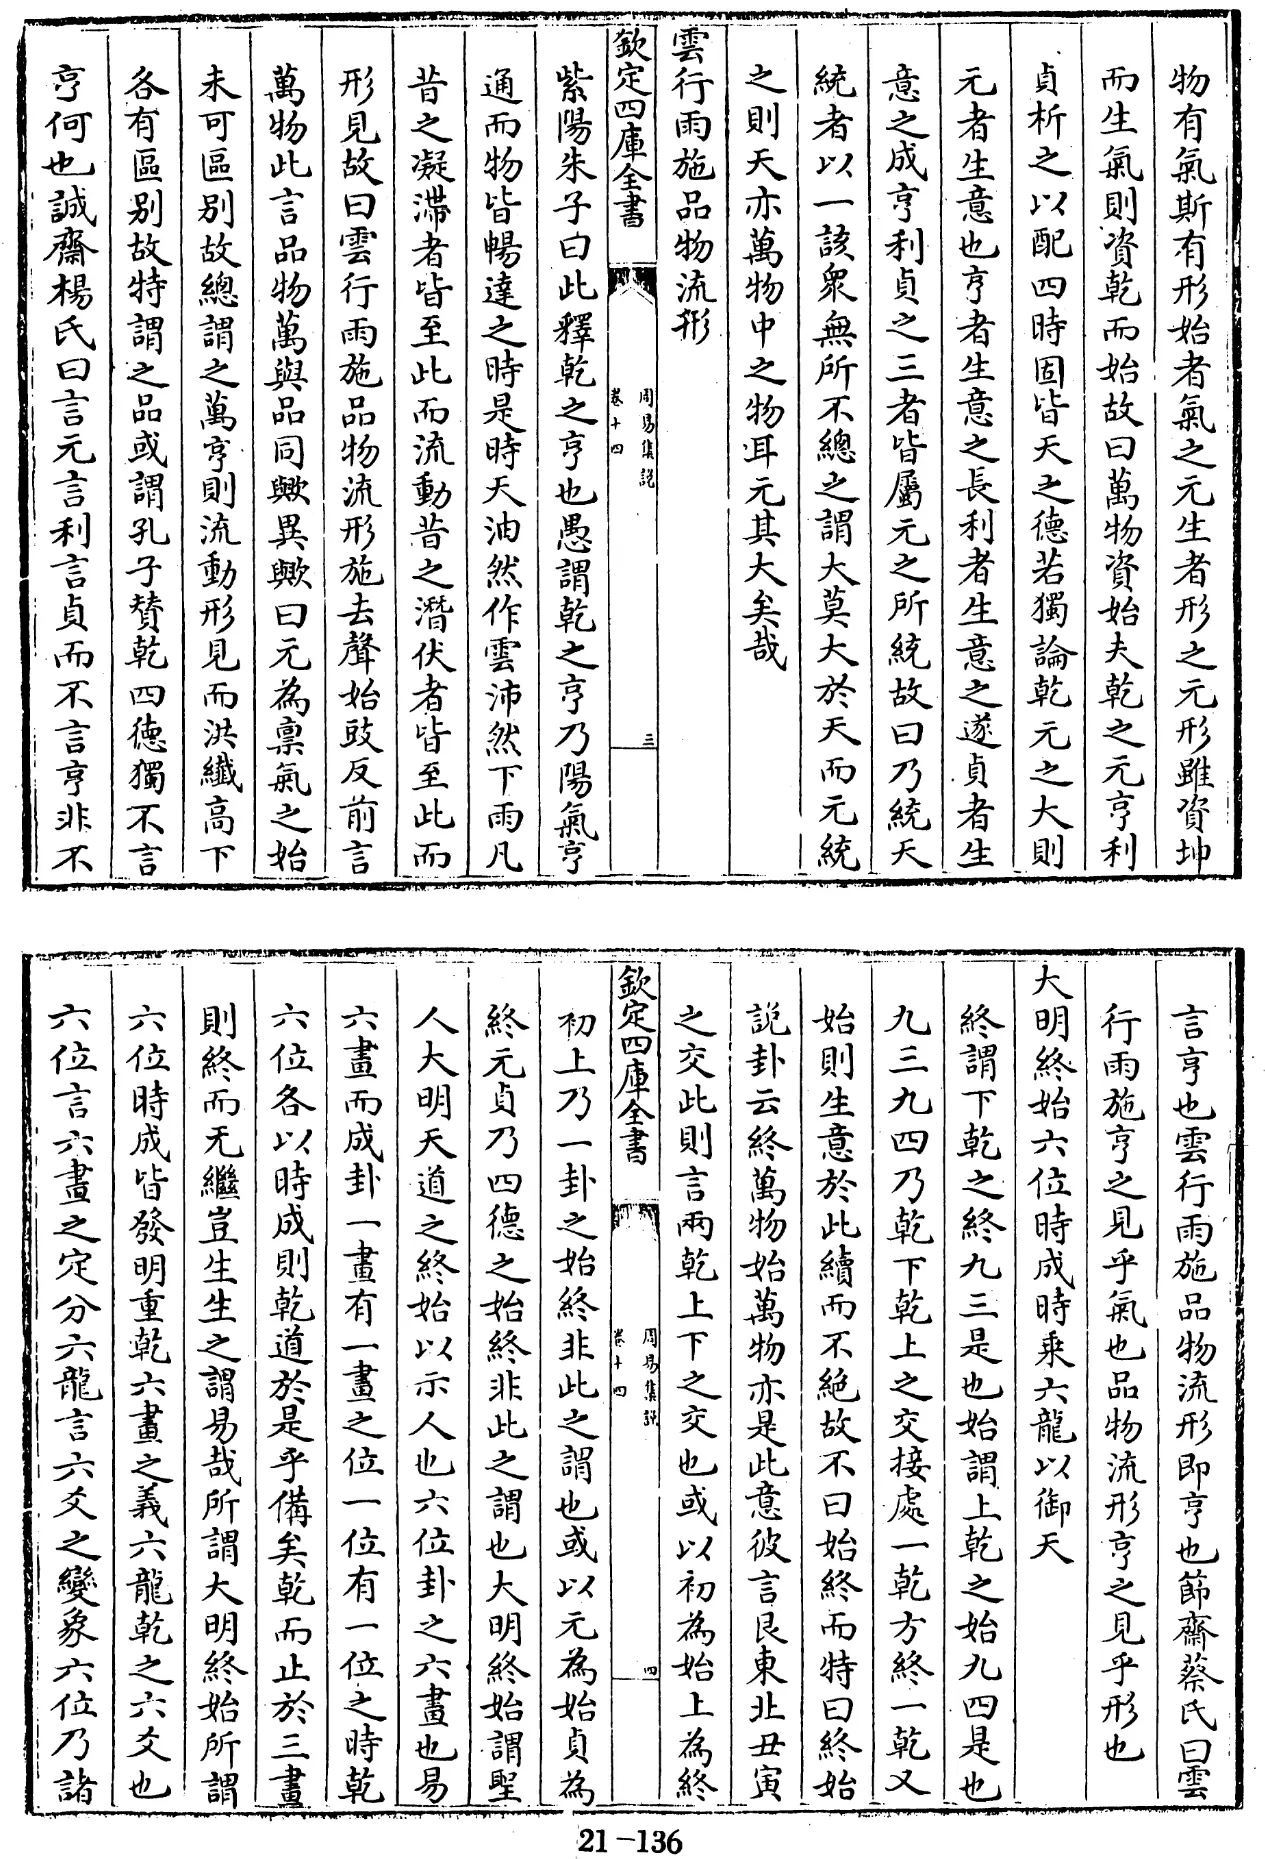 物有氣斯有形始者氣之元生者形之元形雖資坤
而生氣則資乾而始故曰萬物資始夫乾之元亨利
貞析之以配四時固皆天之德若獨論乾元之大則
元者生意也亨者生意之長利者生意之遂貞者生
意之成亨利貞之三者皆屬元之所統故曰乃統天
統者以一該衆無所不總之謂大莫大於天而元統
之則天亦萬物中之物耳元其大矣哉
雲行雨施品物流形
欽定四庫全書
周易集說
卷十四
三
紫陽朱子曰此釋乾之亨也愚謂乾之亨乃陽氣亨
通而物皆暢達之時是時天油然作雲沛然下雨凡
昔之凝滯者皆至此而流動昔之潛伏者皆至此而
形見故曰雲行雨施品物流形施去聲始豉反前言
萬物此言品物萬與品同歟異歟曰元為禀氣之始
未可區别故總謂之萬亨則流動形見而洪纖高下
各有區别故特謂之品或謂孔子賛乾四德獨不言
亨何也誠齋楊氏曰言元言利言貞而不言亨非不
言亨也雲行雨施品物流形即亨也節齋蔡氏曰雲
行雨施亨之見乎氣也品物流形亨之見乎形也
大明終始六位時成時乘六龍以御天
終謂下乾之終九三是也始謂上乾之始九四是也
九三九四乃乾下乾上之交接處一乾方終一乾又
始則生意於此續而不絶故不曰始終而特曰終始
説卦云終萬物始萬物亦是此意彼言艮東北丑寅
之交此則言兩乾上下之交也或以初為始上為終
欽定四庫全書
周易集說
卷十四
四
初上乃一卦之始終非此之謂也或以元為始貞為
終元貞乃四德之始終非此之謂也大明終始謂聖
人大明天道之終始以示人也六位卦之六畫也易
六畫而成卦一畫有一畫之位一位有一位之時乾
六位各以時成則乾道於是乎備矣乾而止於三畫
則終而无繼豈生生之謂易哉所謂大明終始所謂
六位時成皆發明重乾六畫之義六龍乾之六爻也
六位言六畫之定分六龍言六爻之變象六位乃諸
21-136